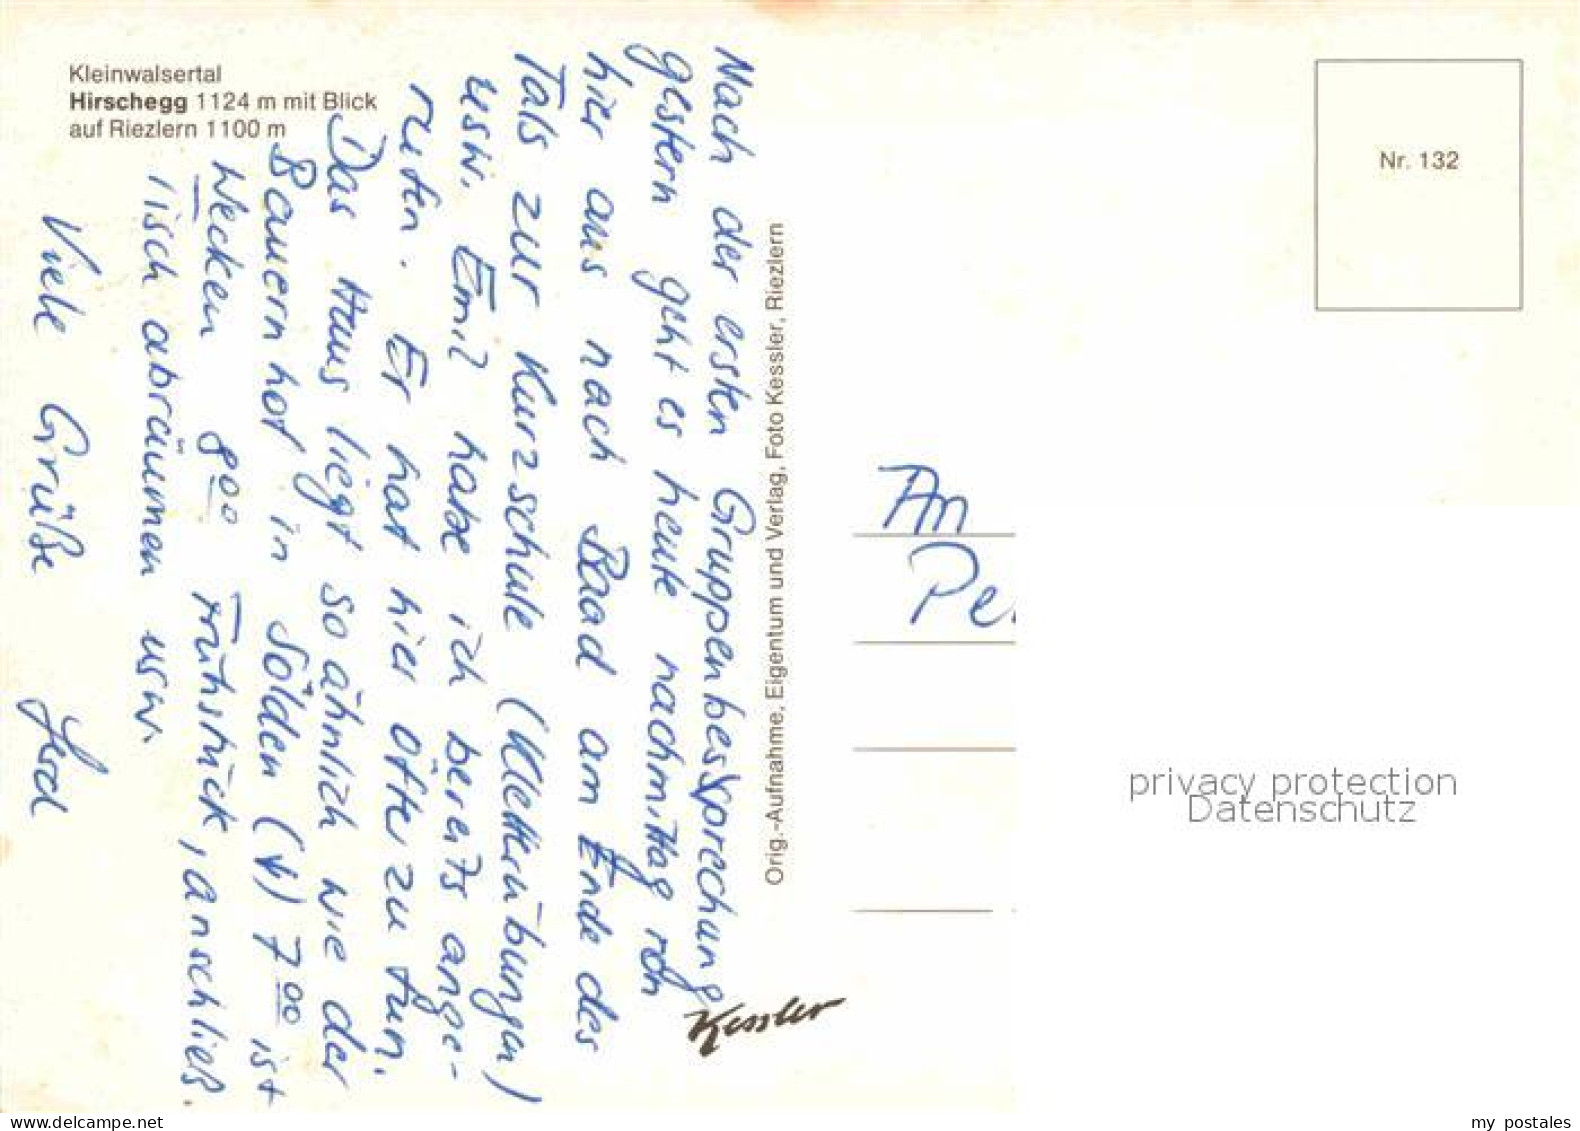 Kleinwalsertal
Hirschegg 1124 m mit Blick
auf Riezlern 1100 m
Nach der ersten Gruppenbesprechung
gestern geht es heute nachmittag von
hier aus nach Baad am Ende des
Tals zur Kurzschule (Kletterübungen)
usw. Emil habe ich bereits ange-
rufen. Er hat hier öfter zu tun.
Das Haus liegt so ähnlich wie der
Bauernhof in Sölden (↓) 7⁰⁰ ist
Wecken 8⁰⁰ Frühstück, anschließ.
Tisch abräumen usw.
Viele Grüße
Orig.-Aufnahme, Eigentum und Verlag, Foto Kessler, Riezlern
Kessler
Nr. 132
An
Pe
privacy protection
Datenschutz
delcampe.net
my postales